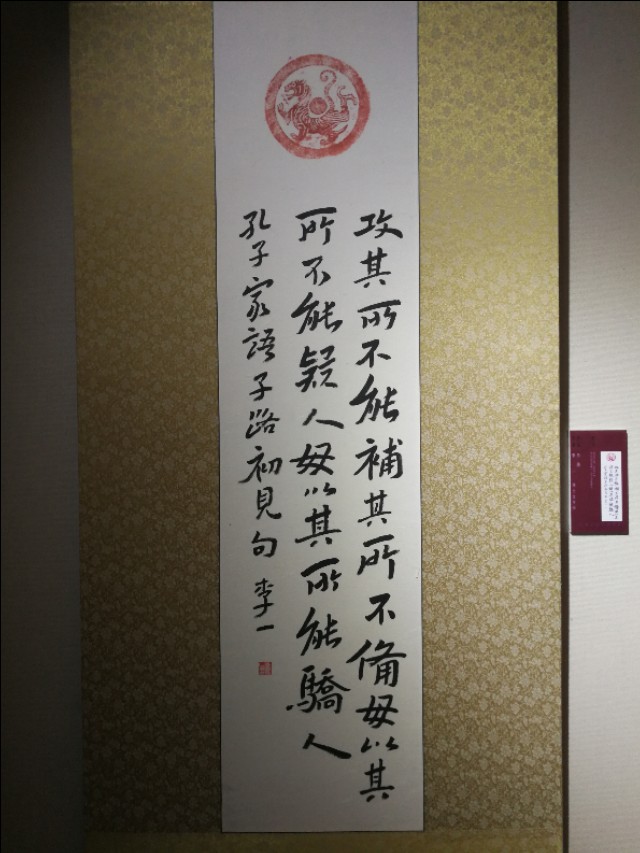 攻其所不能補其所不備毋以其
所不能疑人毋以其所能驕人
孔子家語子路初見句 李一